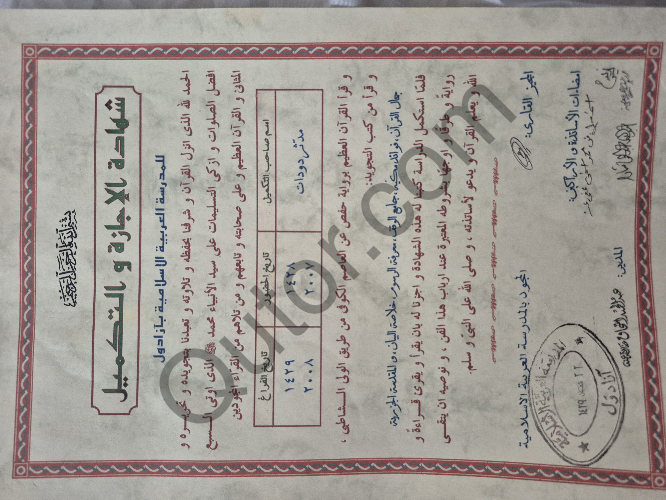 بسم الله الرحمن الرحيم
شهادة بالإجازة و التكميل
للمدرسة العربية الإسلامية بازادول
الحمد لله الذى انزل القرآن و شرفنا بحفظه و تلاوته و تعبدنا بتجويده و تحريره و
افضل الصلوات و ازكى التسليمات على سيد الأنبياء محمد ﷺ الذى اوتى السبع
المثانى و القرآن العظيم و على صحابته و تابعهم و من تلاهم من القراء المجودين
اسم صاحب التكميل
تاريخ
تاريخ الفراغ
مدثر دودات
١٤٢٨
٢٠٠٧
١٤٢٩
٢٠٠٨
و قرأ القرآن العظيم برواية حفص عن العاصم الكوفى من طريق الولى الشاطبى ،
و قرأ من كتب التجويد:
جمال القرآن، فوائد مكية، جامع الوقف، معرفة الرسوم، خلاصة البيان، و المقدمة الجزرية
فلمّا استكمل الدراسة كتبنا له هذه الشهادة و اجزنا له بان يقرأ و يقرئ قراءة و
رواية و طرقا و اوجها بشروطه المعتبرة عند ارباب هذا الفن ، و نوصيه ان يتقى
الله و يعلم القرآن و يدعو لأساتذته ، و صلى الله على النبى و سلم.
المجيز القارئ:
المجود بالمدرسة العربية الاسلامية
امضاءات الأساتذة و الأراكين
المدير:
المدرسة العربية الاسلامية
آزادول
Qutor.com